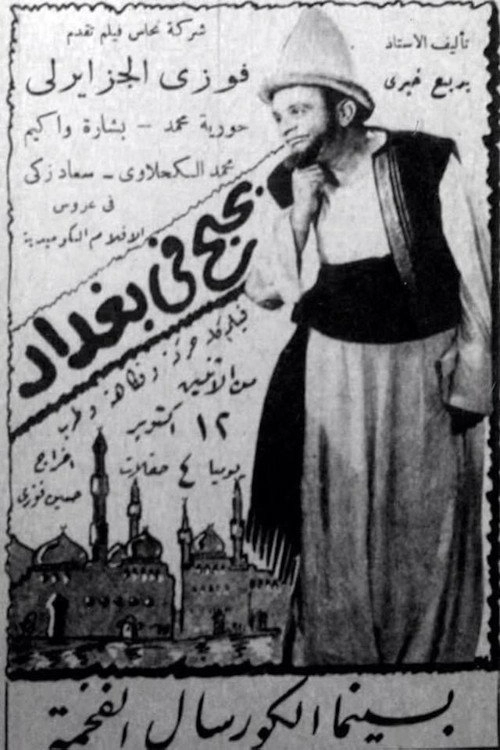 شركة نحاس فيلم تقدم
تأليف الاستاذ
بديع خيرى
فوزى الجزايرلى
حورية محمد – بشارة واكيم
محمد الكحلاوى – سعاد زكى
فى عروس
الافلام الكوميدية
بحبح فى بغداد
فيلم كله مرح وفكاهة وطرب
من الاثنين
١٢ اكتوبر
يوميا ٤ حفلات
اخراج
حسين فوزى
بسينما الكورسال الفخمة